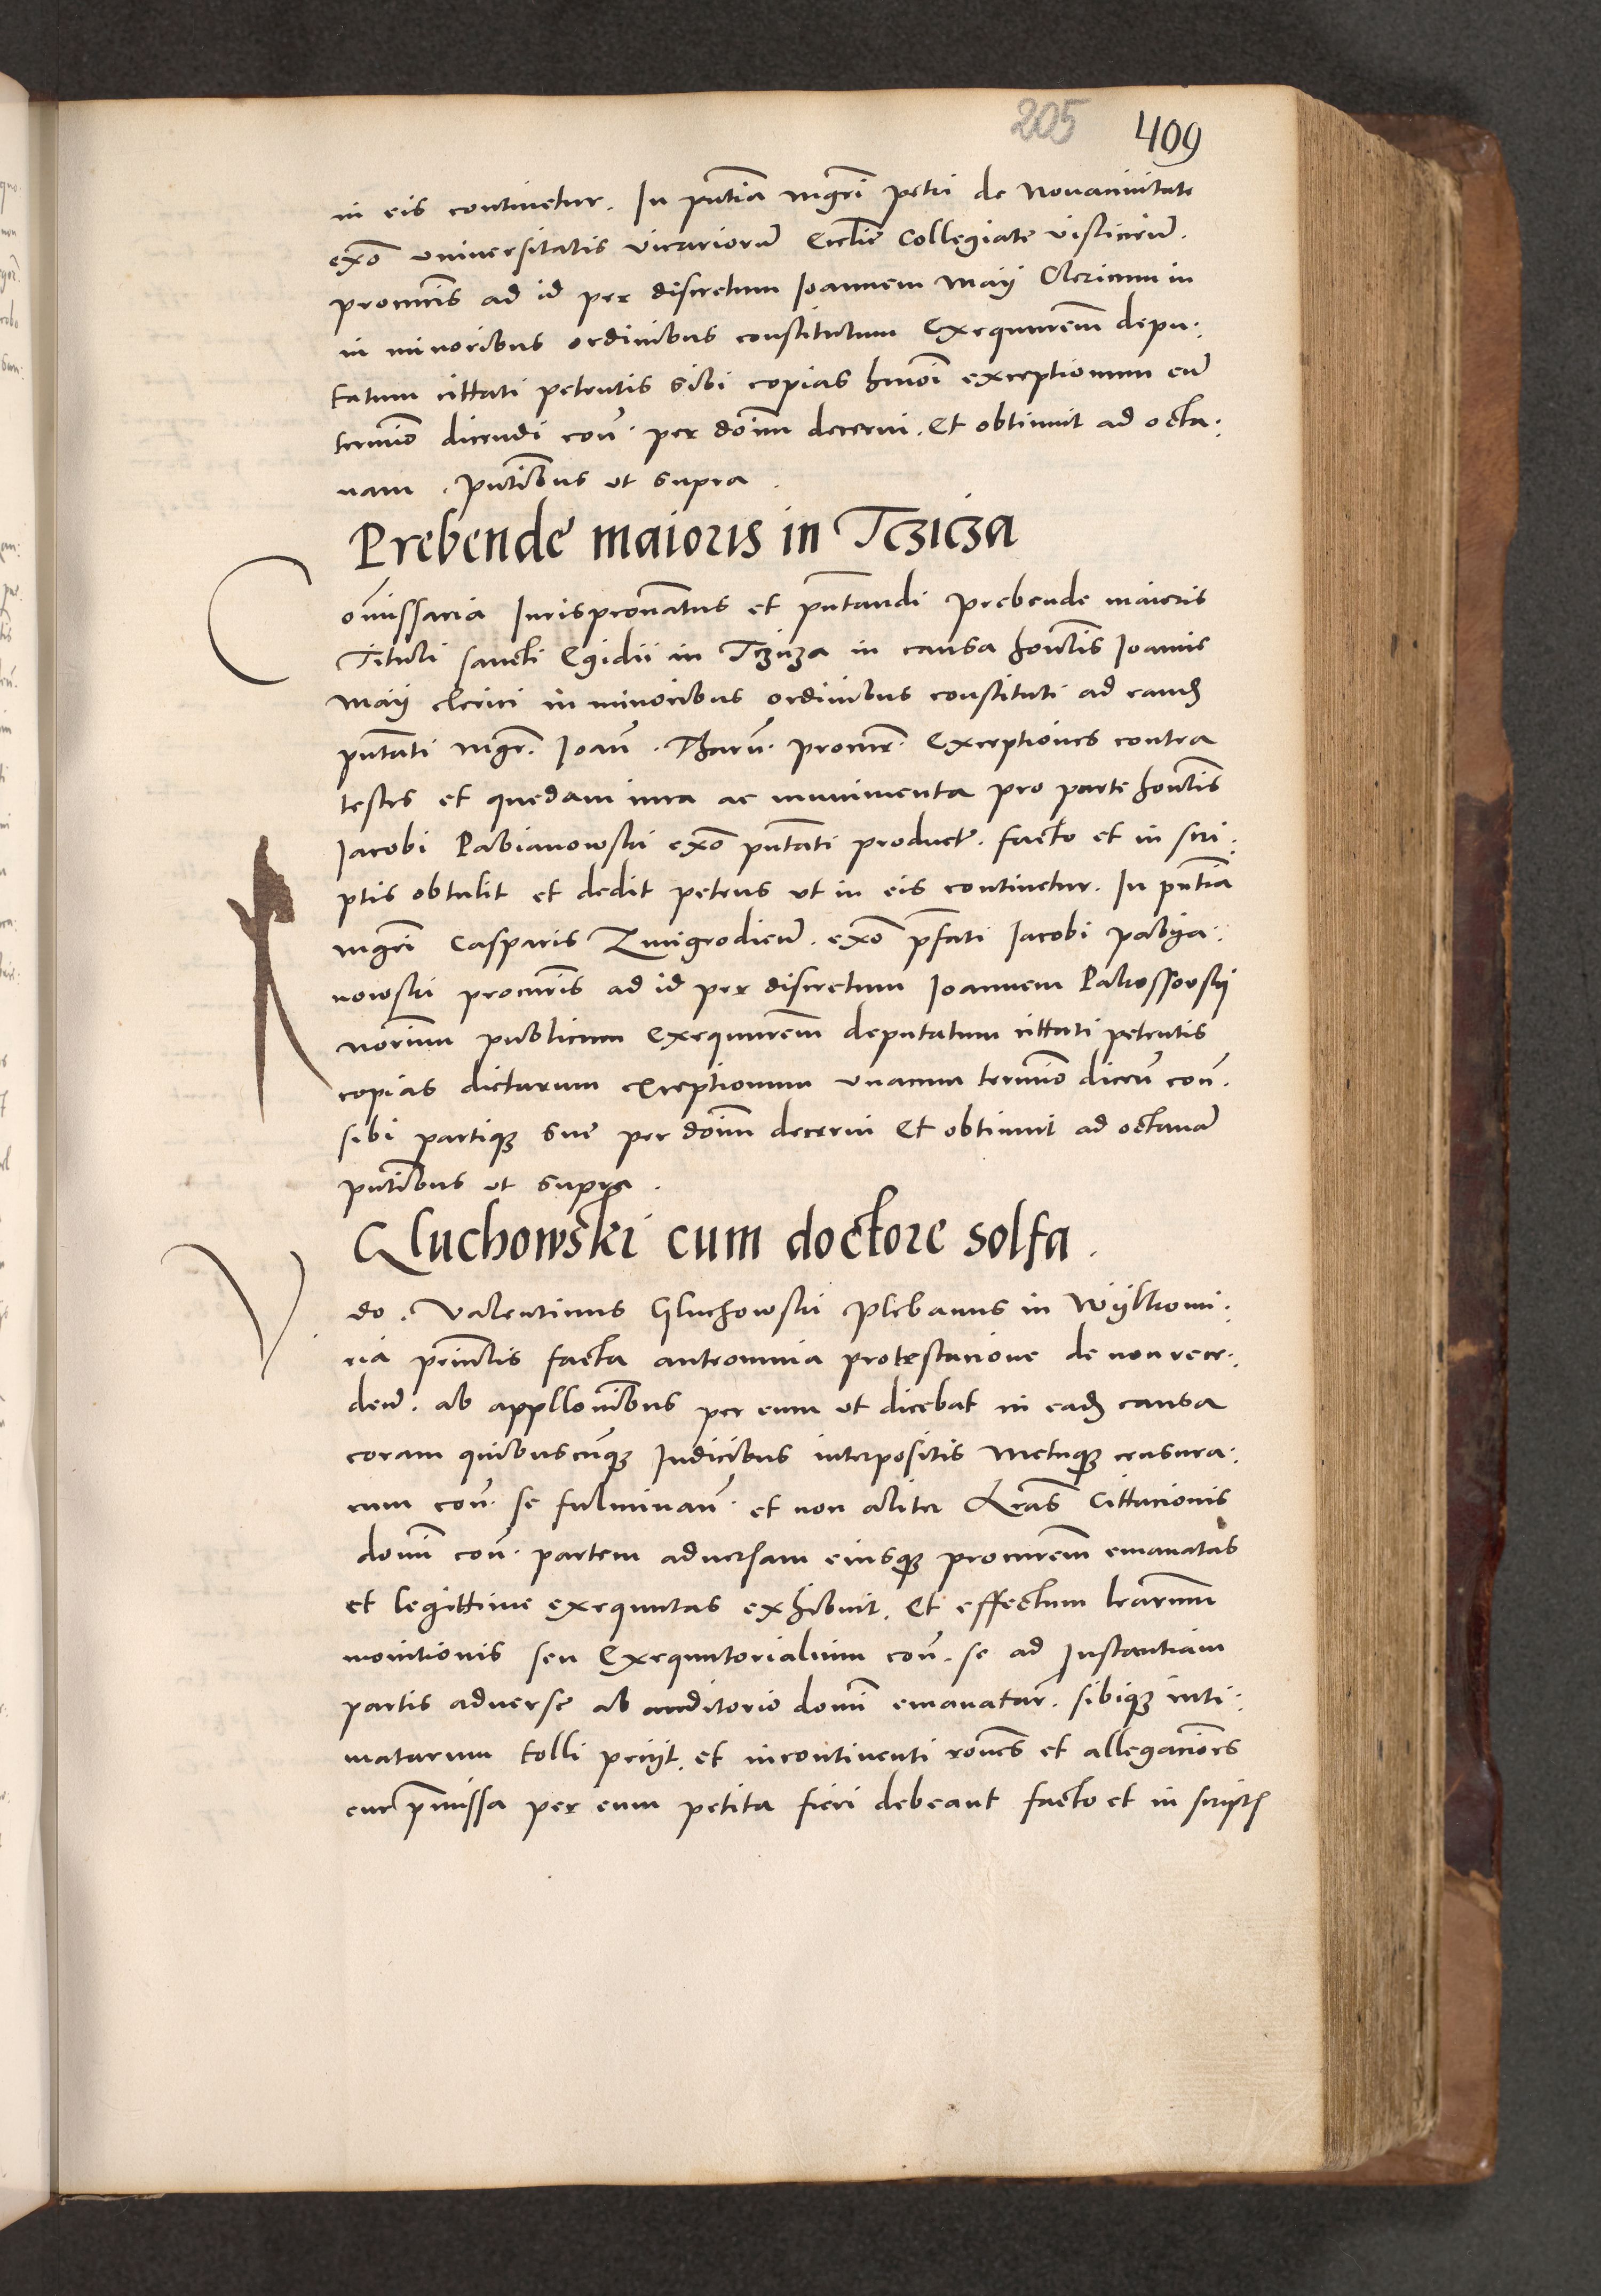 205 409
in eis continetur. In pñtia mgri Petri de Novacivitate
exo universitatis vicariorũ Ecclie Collegiate visliciẽ.
procuris ad id per discretum Ioannem Maij Clericum in
in minoribus ordinibus constitutum Exequurem depu:
tatum cittati petentis sibi copias hmoi exceptionum cũ
termio dicendi coñ. per doim decerni. Et obtinuit ad octa:
vam. Pñtibus ut supra.
Prebende maioris in Tczicza
omissaria Iurispronatus et pñtandi Prebende maioris
C
Tituli sancti Egidii in Tczicza in causa honlis Ioanis
Maij clerici in minoribus ordinibus constituti ad eandẽ
pñtati mgr. Ioañ. Tharñ. procur. Exceptiones contra
testes et quedam iura ac munimenta pro parte honlis
Iacobi Pabianowski exo pñtati product. facto et in scri:
ptis obtulit et dedit petens ut in eis continetur. In pñtia
mgri Casparis Zmigrodieñ. exo pfati Iacobi Pabija:
nowski procuris ad id per discretum Ioannem Pakossovskij
norium publicum Exequurem deputatum cittati petentis
copias dictarum exceptionum unacum termio diceñ coñ.
sibi partique sue per doim decerni Et obtinuit ad octavã
pñtibus ut supra.
Gluchowski cum doctore solfa.
V. do. Valentinus Gluchowski Plebanus in Wijelkomi:
cia pncialis facta anteomnia protestacione de non rece:
deñ. ab appllonibus per eum ut dicebat in eadẽ causa
coram quibuscũque Iudicibus interpositis metuque censura:
rum coñ. se fulminañ. et non aliter Lras Cittacionis
domi coñ. partem adversam eiusque procurem emanatas
et legittime exequutas exhibuit. Et effectum lrarum
monitionis seu Exequutorialium coñ. se ad Instantiam
partis adverse ab auditorio domi emanatar. sibique inti:
matarum tolli pecijt. et incontinenti rones et allegaciones
cur pmissa per eum petita fieri debeant facto et in script